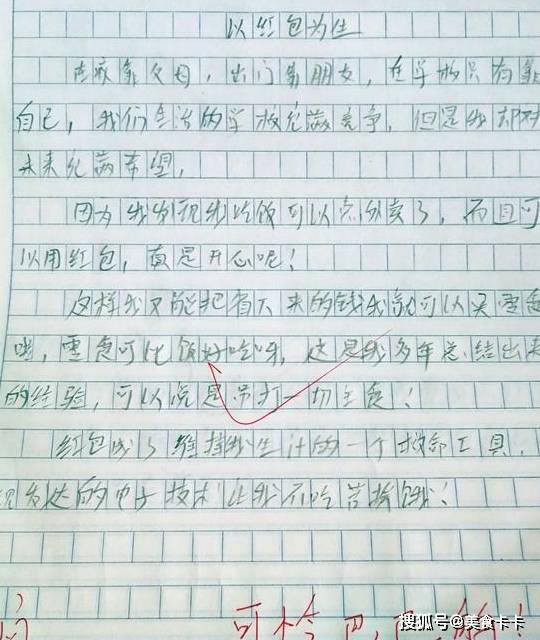 以红包为生
在家靠父母，出门靠朋友，在学校只有靠
自己，我们生活的学校充满竞争，但是我却对
未来充满希望，
因为我发现我吃饭可以点外卖了，而且可
以用红包，真是开心呢！
这样我又能把省下来的钱我就可以买零食
咣，零食可比饭好吃呀，这是我多年总结出来
的经验，可以说是吊打一切主食！
红包成了维持我生计的一个救命工具，
发达的电子技术让我不吃苦挨饿！
可怜巴巴的！
搜狐号@美食卡卡